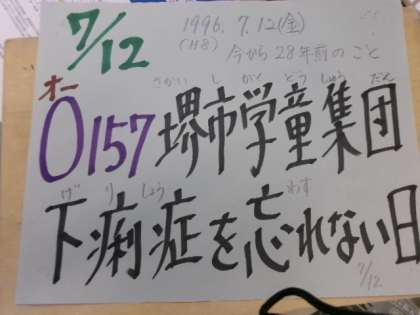 7/12
1996.7.12(金)
(H8) 今から28年前のこと
オー
さかいしがくどうしゅうだん
O157堺市学童集団
げりしょう わす
下痢症を忘れない日
7/12